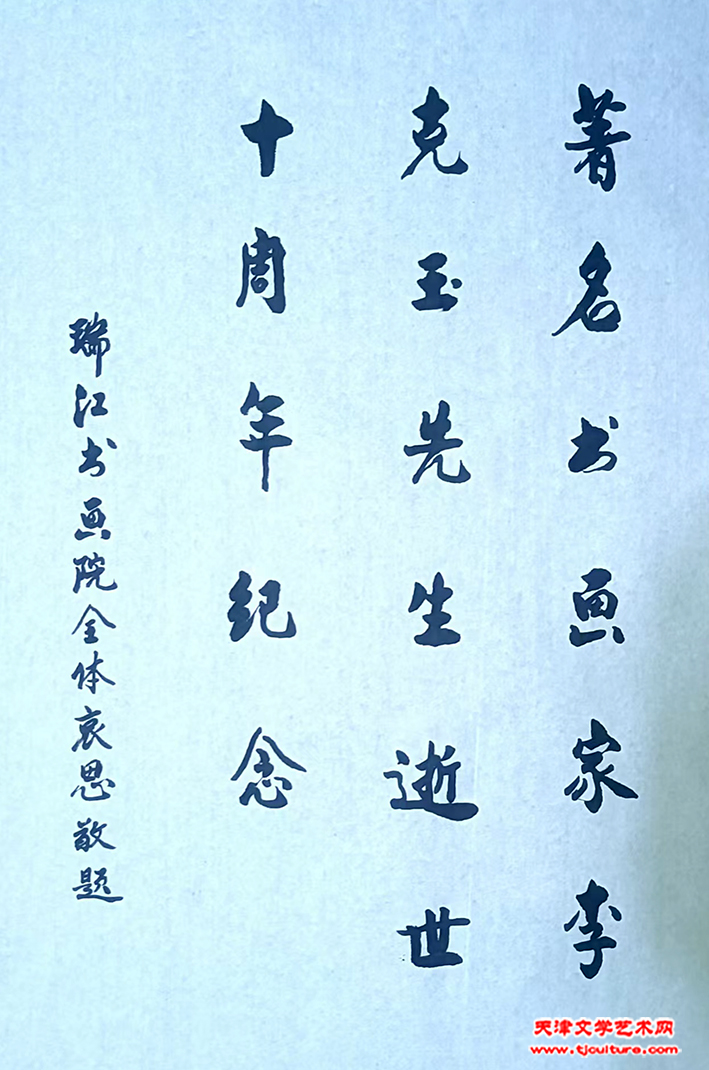 著名书画家李
克玉先生逝世
十周年纪念
瑞江书画院全体哀思敬题
天津文学艺术网
www.tjculture.com